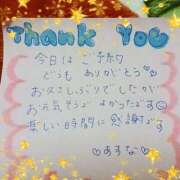 Thank You
今日は ご予約
どうも ありがとう♡
お久しぶりでしたが
お元気そうで よかったです☺
楽しい時間に 感謝です
♡あすな♡